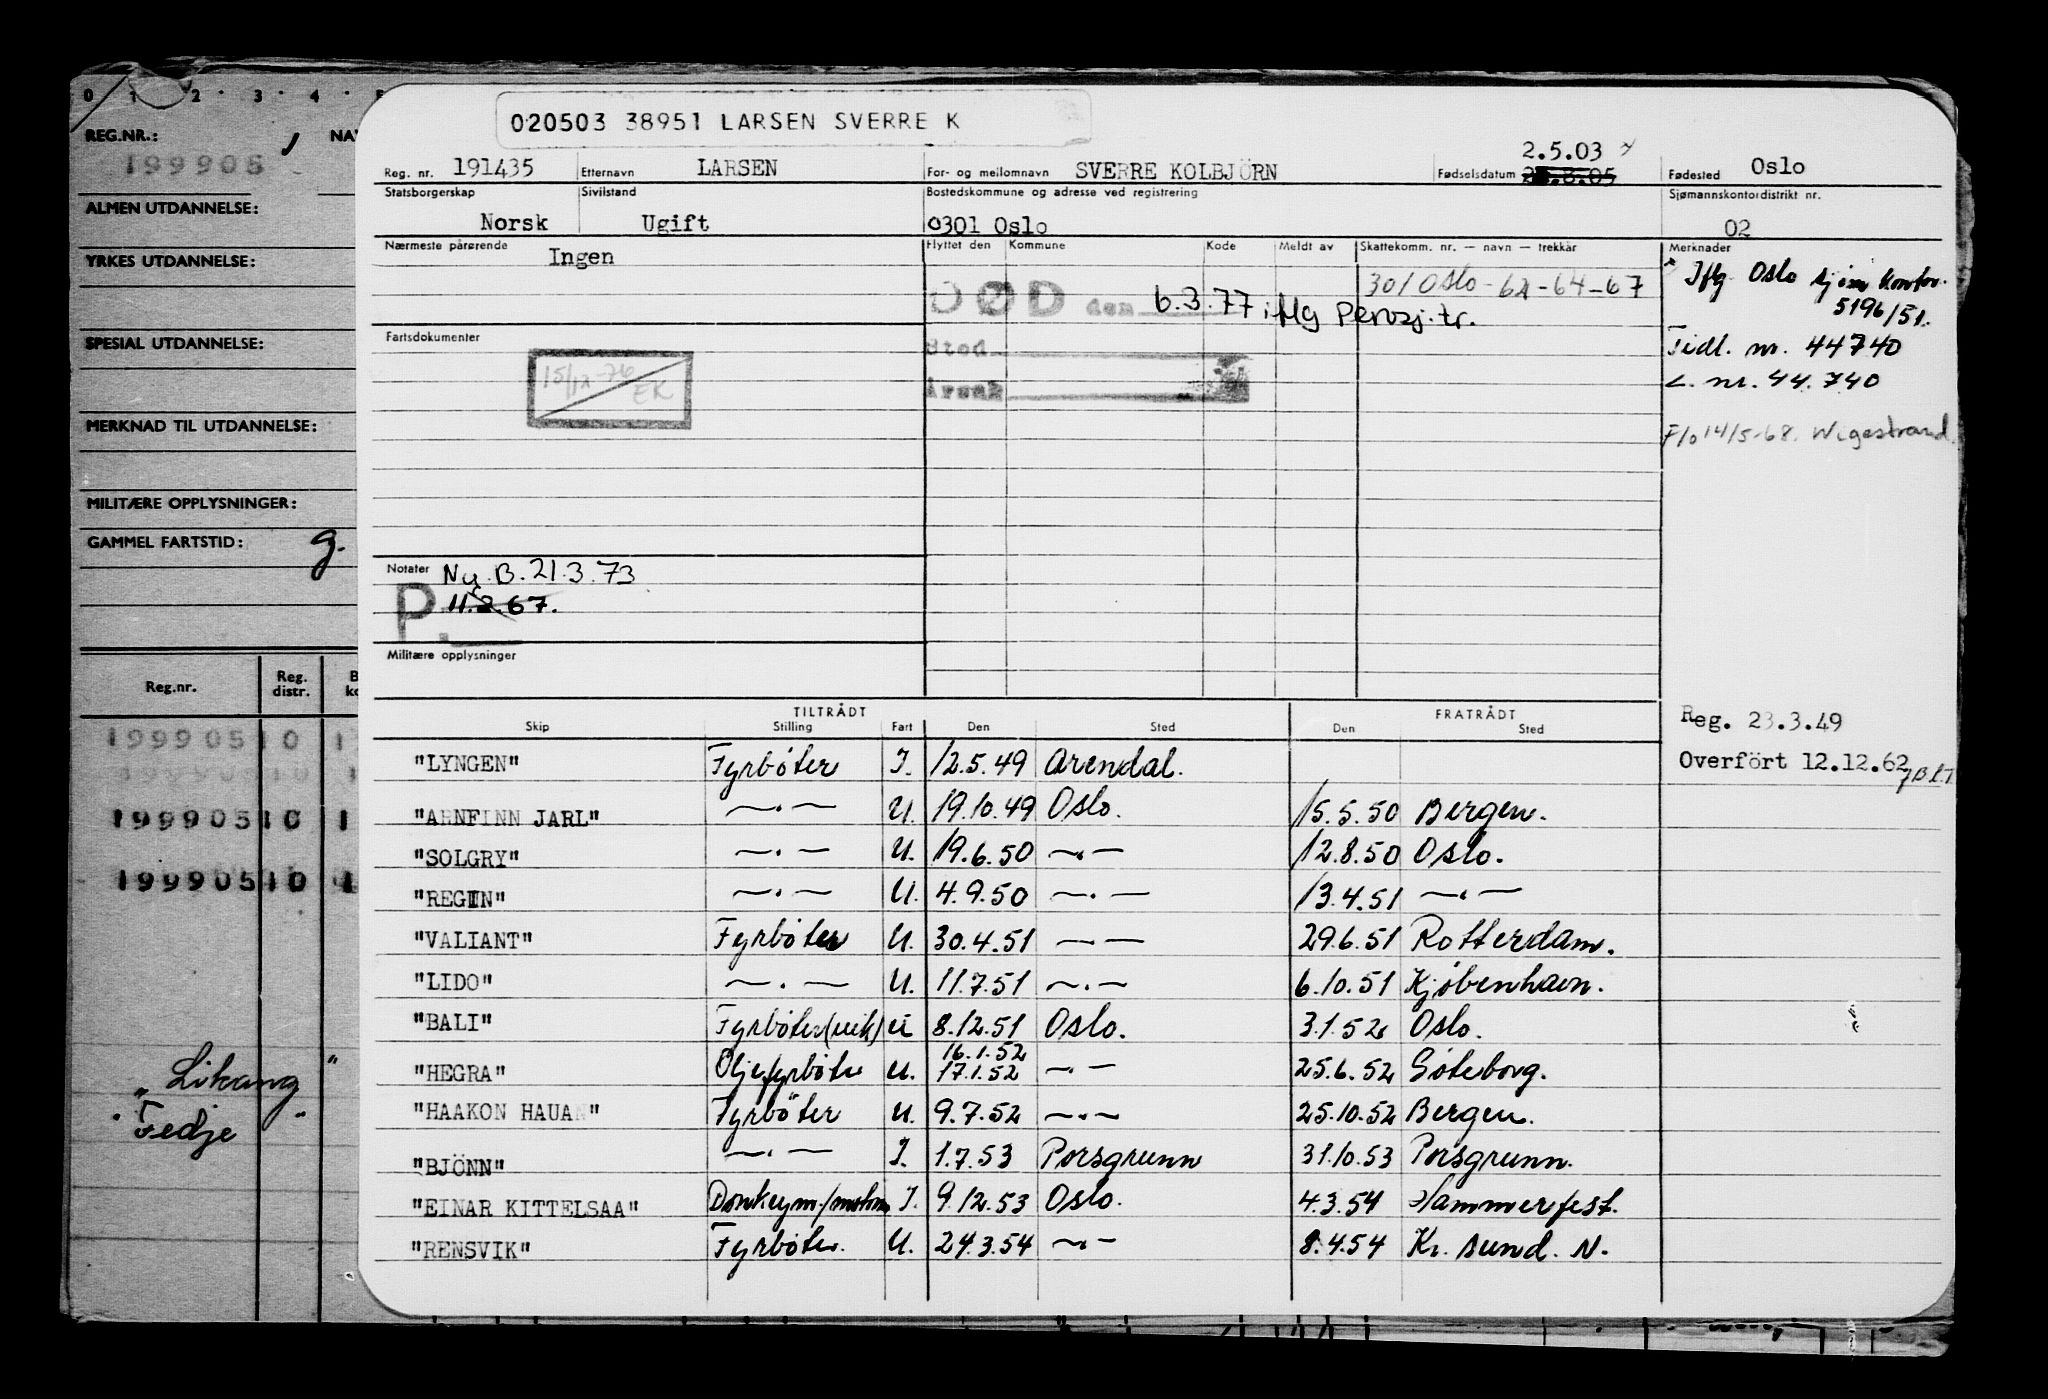 0 1 2 3 4 5
REG.NR.: NA
199905
ALMEN UTDANNELSE:
YRKES UTDANNELSE:
SPESIAL UTDANNELSE:
MERKNAD TIL UTDANNELSE:
MILITÆRE OPPLYSNINGER:
GAMMEL FARTSTID: g.
Reg.nr. Reg. distr. B ko
199905 10 1
199905 10 1
199905 10 1
199905 10 1
"Likang"
"Fedje"
020503 38951 LARSEN SVERRE K
Reg. nr. 191435 Etternavn LARSEN For- og mellomnavn SVERRE KOLBJÖRN Fødselsdatum 2.5.03 Fødested Oslo
Statsborgerskap Norsk Sivilstand Ugift Bostedskommune og adresse ved registrering 0301 Oslo Sjømannskontordistrikt nr. 02
Nærmeste pårørende Ingen Flyttet den Kommune Kode Meldt av Skattekomm. nr. — navn — trekkår Merknader
301 Oslo - 62 - 64 - 67
DØD den 6.3.77 iflg Persj. tr.
Sted
Årsak
Iflg. Oslo sjøm kontor.
5196/51.
Tidl. nr. 44740
L. nr. 44.740
F/o 14/5-68. Wigestrand.
Fartsdokumenter
15/12-76 EK
Notater Ny. B. 21.3.73
P. 11.2.67.
Militære opplysninger
TILTRÅDT FRATRÅDT
Skip Stilling Fart Den Sted Den Sted
Reg. 23.3.49
Overfört 12.12.62
"LYNGEN" Fyrbøter I. 12.5.49 Arendal.
"ARNFINN JARL" —.— U. 19.10.49 Oslo. 15.5.50 Bergen.
"SOLGRY" —.— U. 19.6.50 —.— 12.8.50 Oslo.
"REGIN" —.— U. 4.9.50 —.— 13.4.51 —.—
"VALIANT" Fyrbøter U. 30.4.51 —.— 29.6.51 Rotterdam.
"LIDO" —.— U. 11.7.51 —.— 6.10.51 Kjøbenhavn.
"BALI" Fyrbøter (vik) u 8.12.51 Oslo. 3.1.52 Oslo.
"HEGRA" Oljefyrbøter u. 16.1.52 17.1.52 —.— 25.6.52 Gøteborg.
"HAAKON HAUAN" Fyrböter u. 9.7.52 —.— 25.10.52 Bergen.
"BJÖNN" —.— I. 1.7.53 Porsgrunn 31.10.53 Porsgrunn.
"EINAR KITTELSAA" Donkeym./motorm I. 9.12.53 Oslo. 4.3.54 Hammerfest.
"RENSVIK" Fyrbøter. U. 24.3.54 —.— 8.4.54 Kr. sund. N.